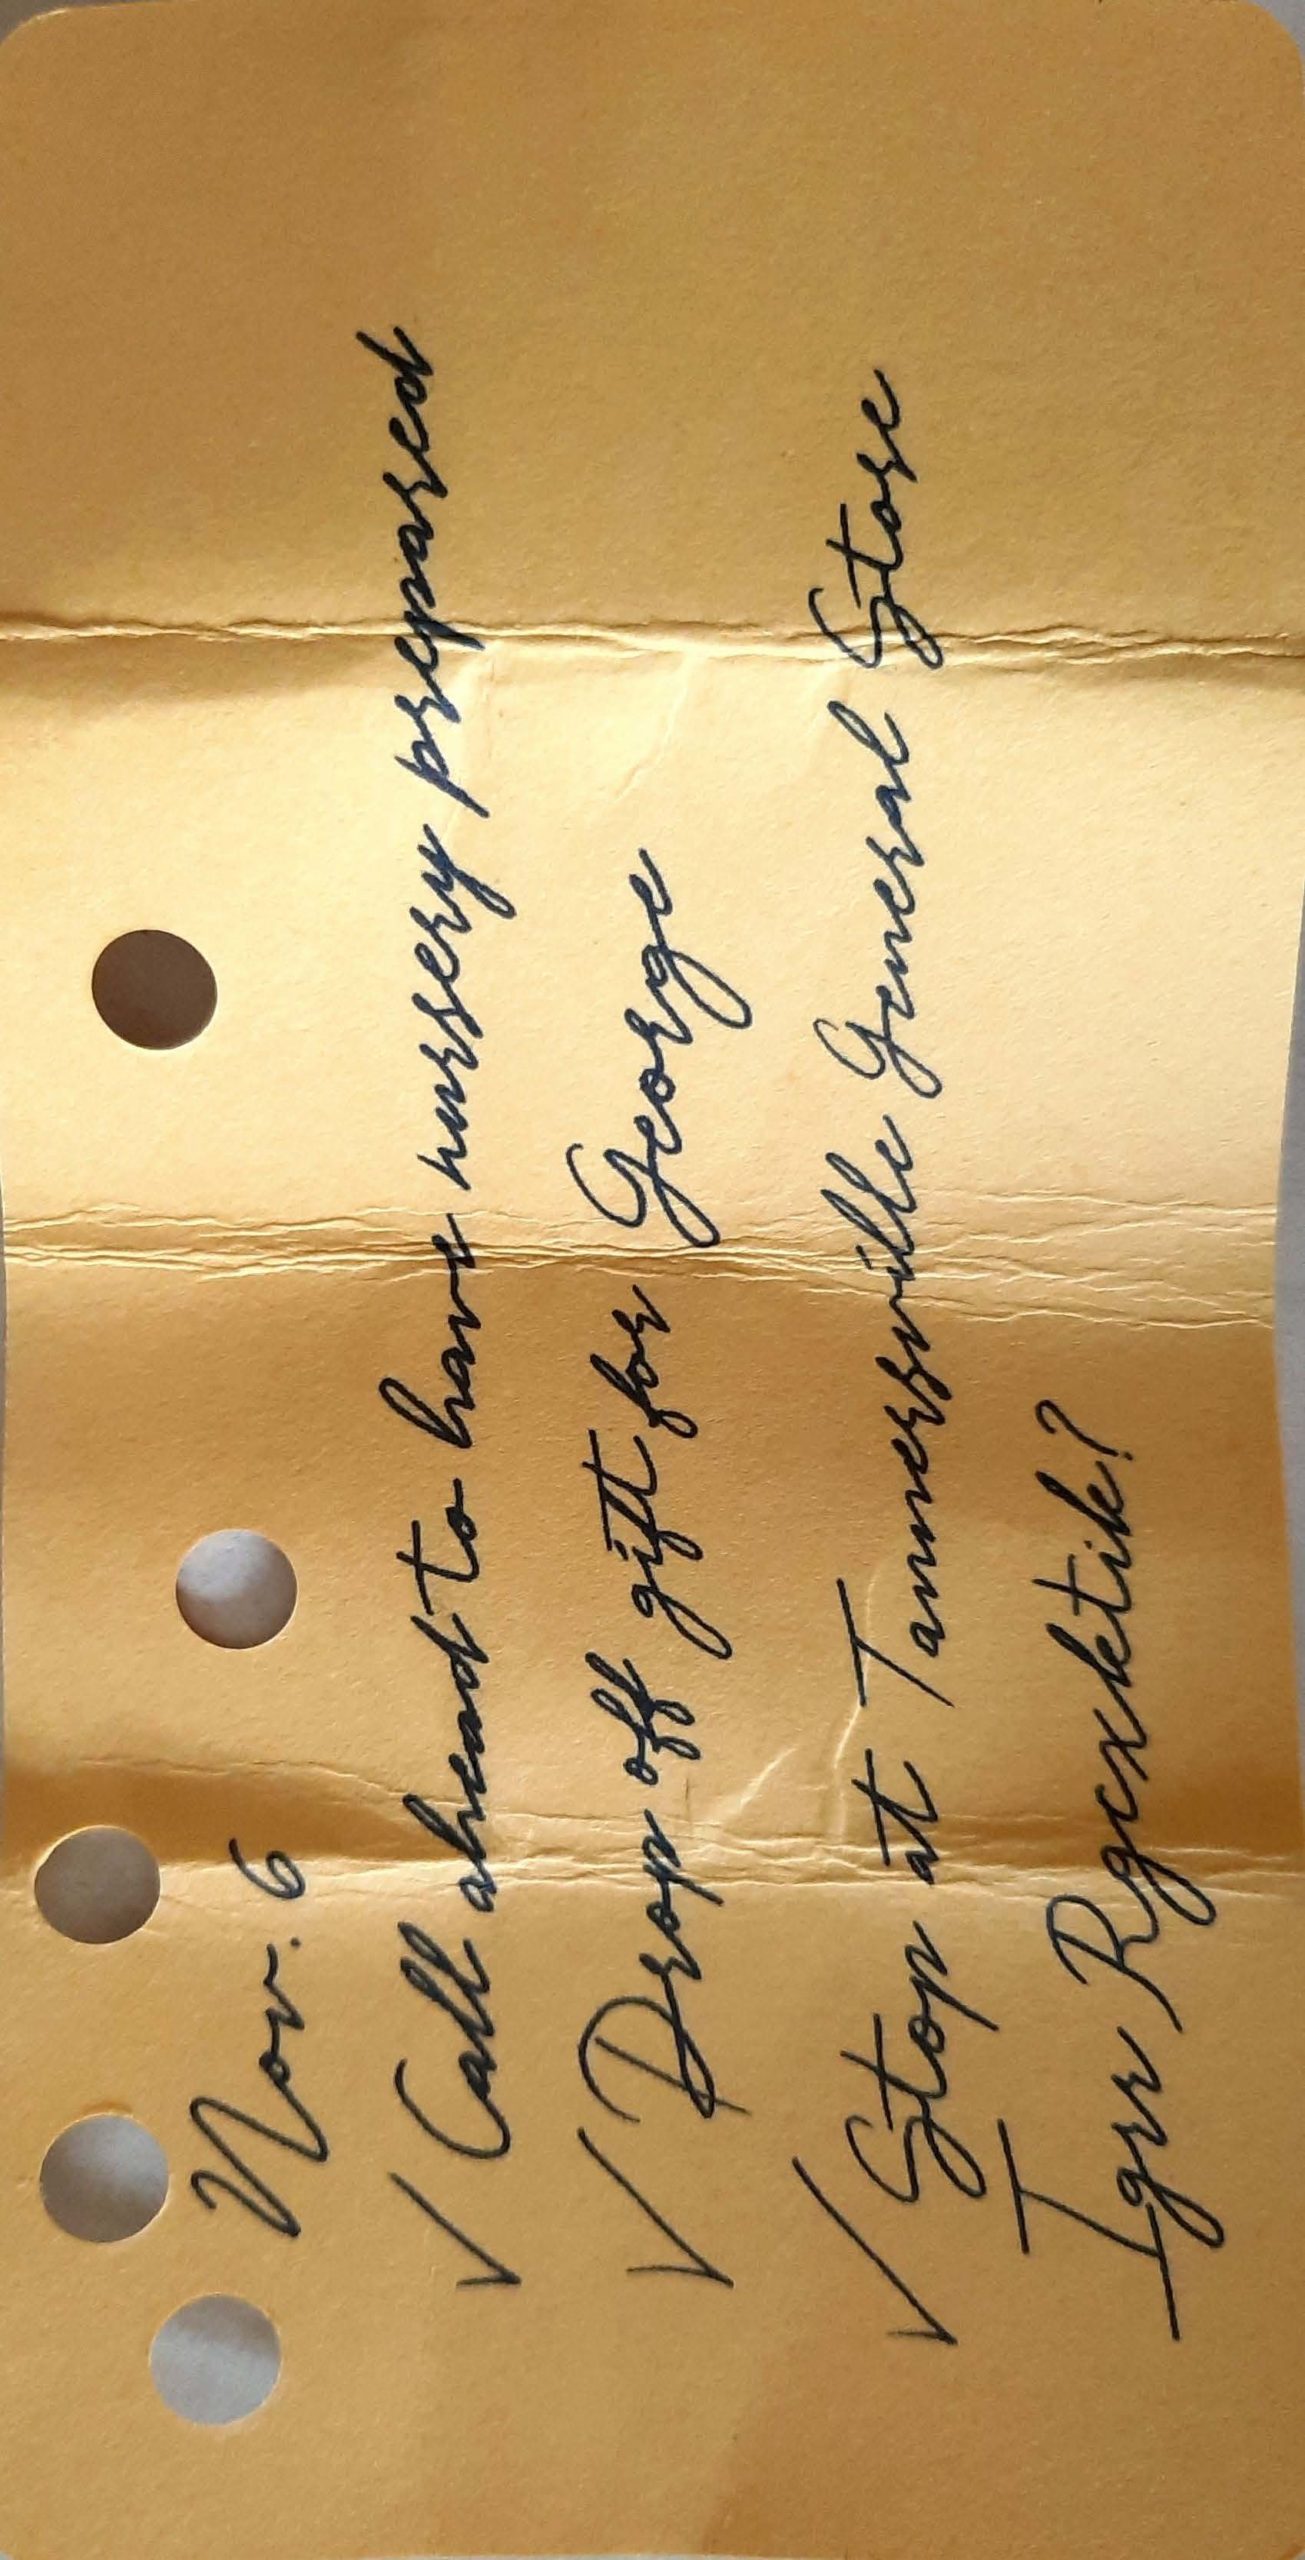 Nov. 6
✓ Call ahead to have nursery prepared
✓ Drop off gift for George
✓ Stop at Tannersville General Store
Igrr Rgcxktik?